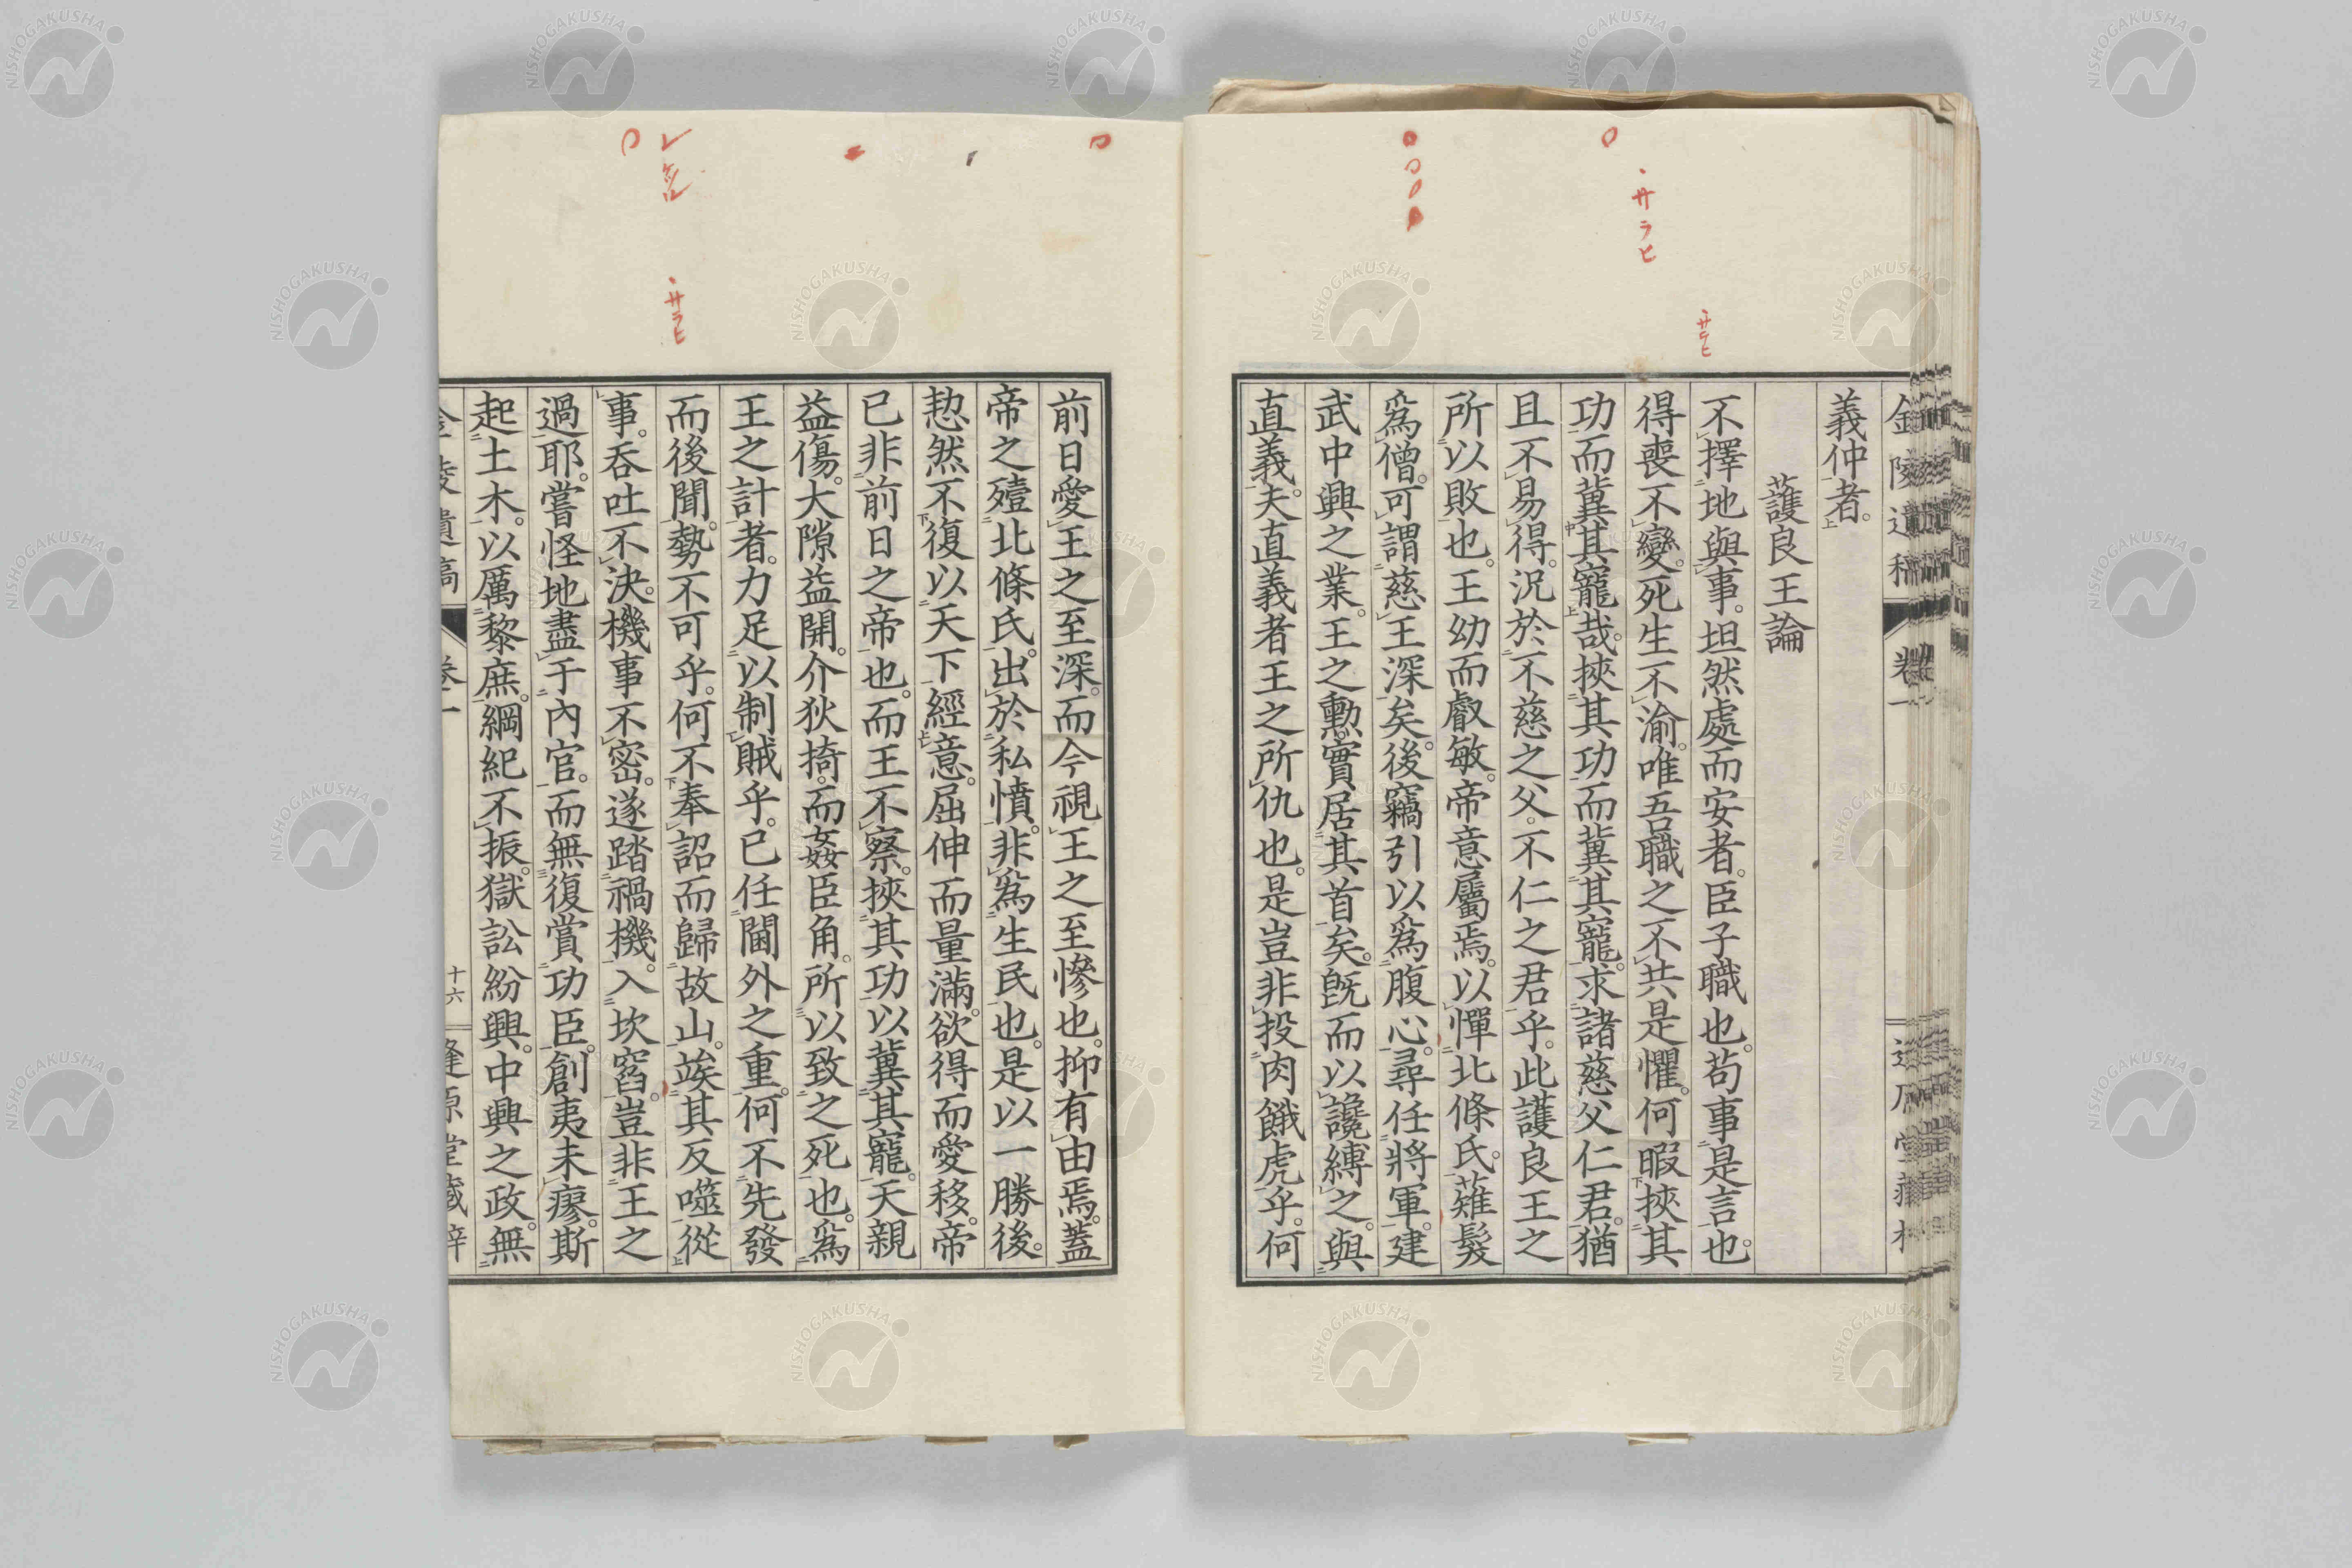 金陵遺稿 卷一
義仲者。
護良王論
不擇地與事。坦然處而安者。臣子職也。苟事是言也。
得喪不變。死生不渝。唯吾職之不共是懼。何暇挾其
功而冀其寵哉。挾其功而冀其寵。求諸慈父仁君。猶
且不易得。況於不慈之父。不仁之君乎。此護良王之
所以敗也。王幼而叡敏。帝意屬焉。以憚北條氏。薙髮
爲僧。可謂慈王深矣。後竊引以爲腹心。尋任將軍。建
武中興之業。王之勳。實居其首矣。旣而以讒縛之。與
直義。夫直義者王之所仇也。是豈非投肉餓虎乎。何
前日愛王之至深。而今視王之至慘也。抑有由焉。蓋
帝之殪北條氏。出於私憤。非爲生民也。是以一勝後。
恝然不復以天下經意。屈伸而量滿。欲得而愛移。帝
已非前日之帝也。而王不察。挾其功以冀其寵。天親
益傷。大隙益開。介狄掎。而姦臣角。所以致之死也。爲
王之計者。力足以制賊乎。已任閫外之重。何不先發
而後聞。勢不可乎。何不奉詔而歸故山。竢其反噬從
事。呑吐不決。機事不密。遂踏禍機。入坎窞。豈非王之
過耶。嘗怪地盡于內官。而無復賞功臣。創夷未瘳。斯
起土木。以厲黎庶。綱紀不振。獄訟紛興。中興之政。無
金陵遺稿 卷一 十六 逢原堂藏梓
NISHOGAKUSHA